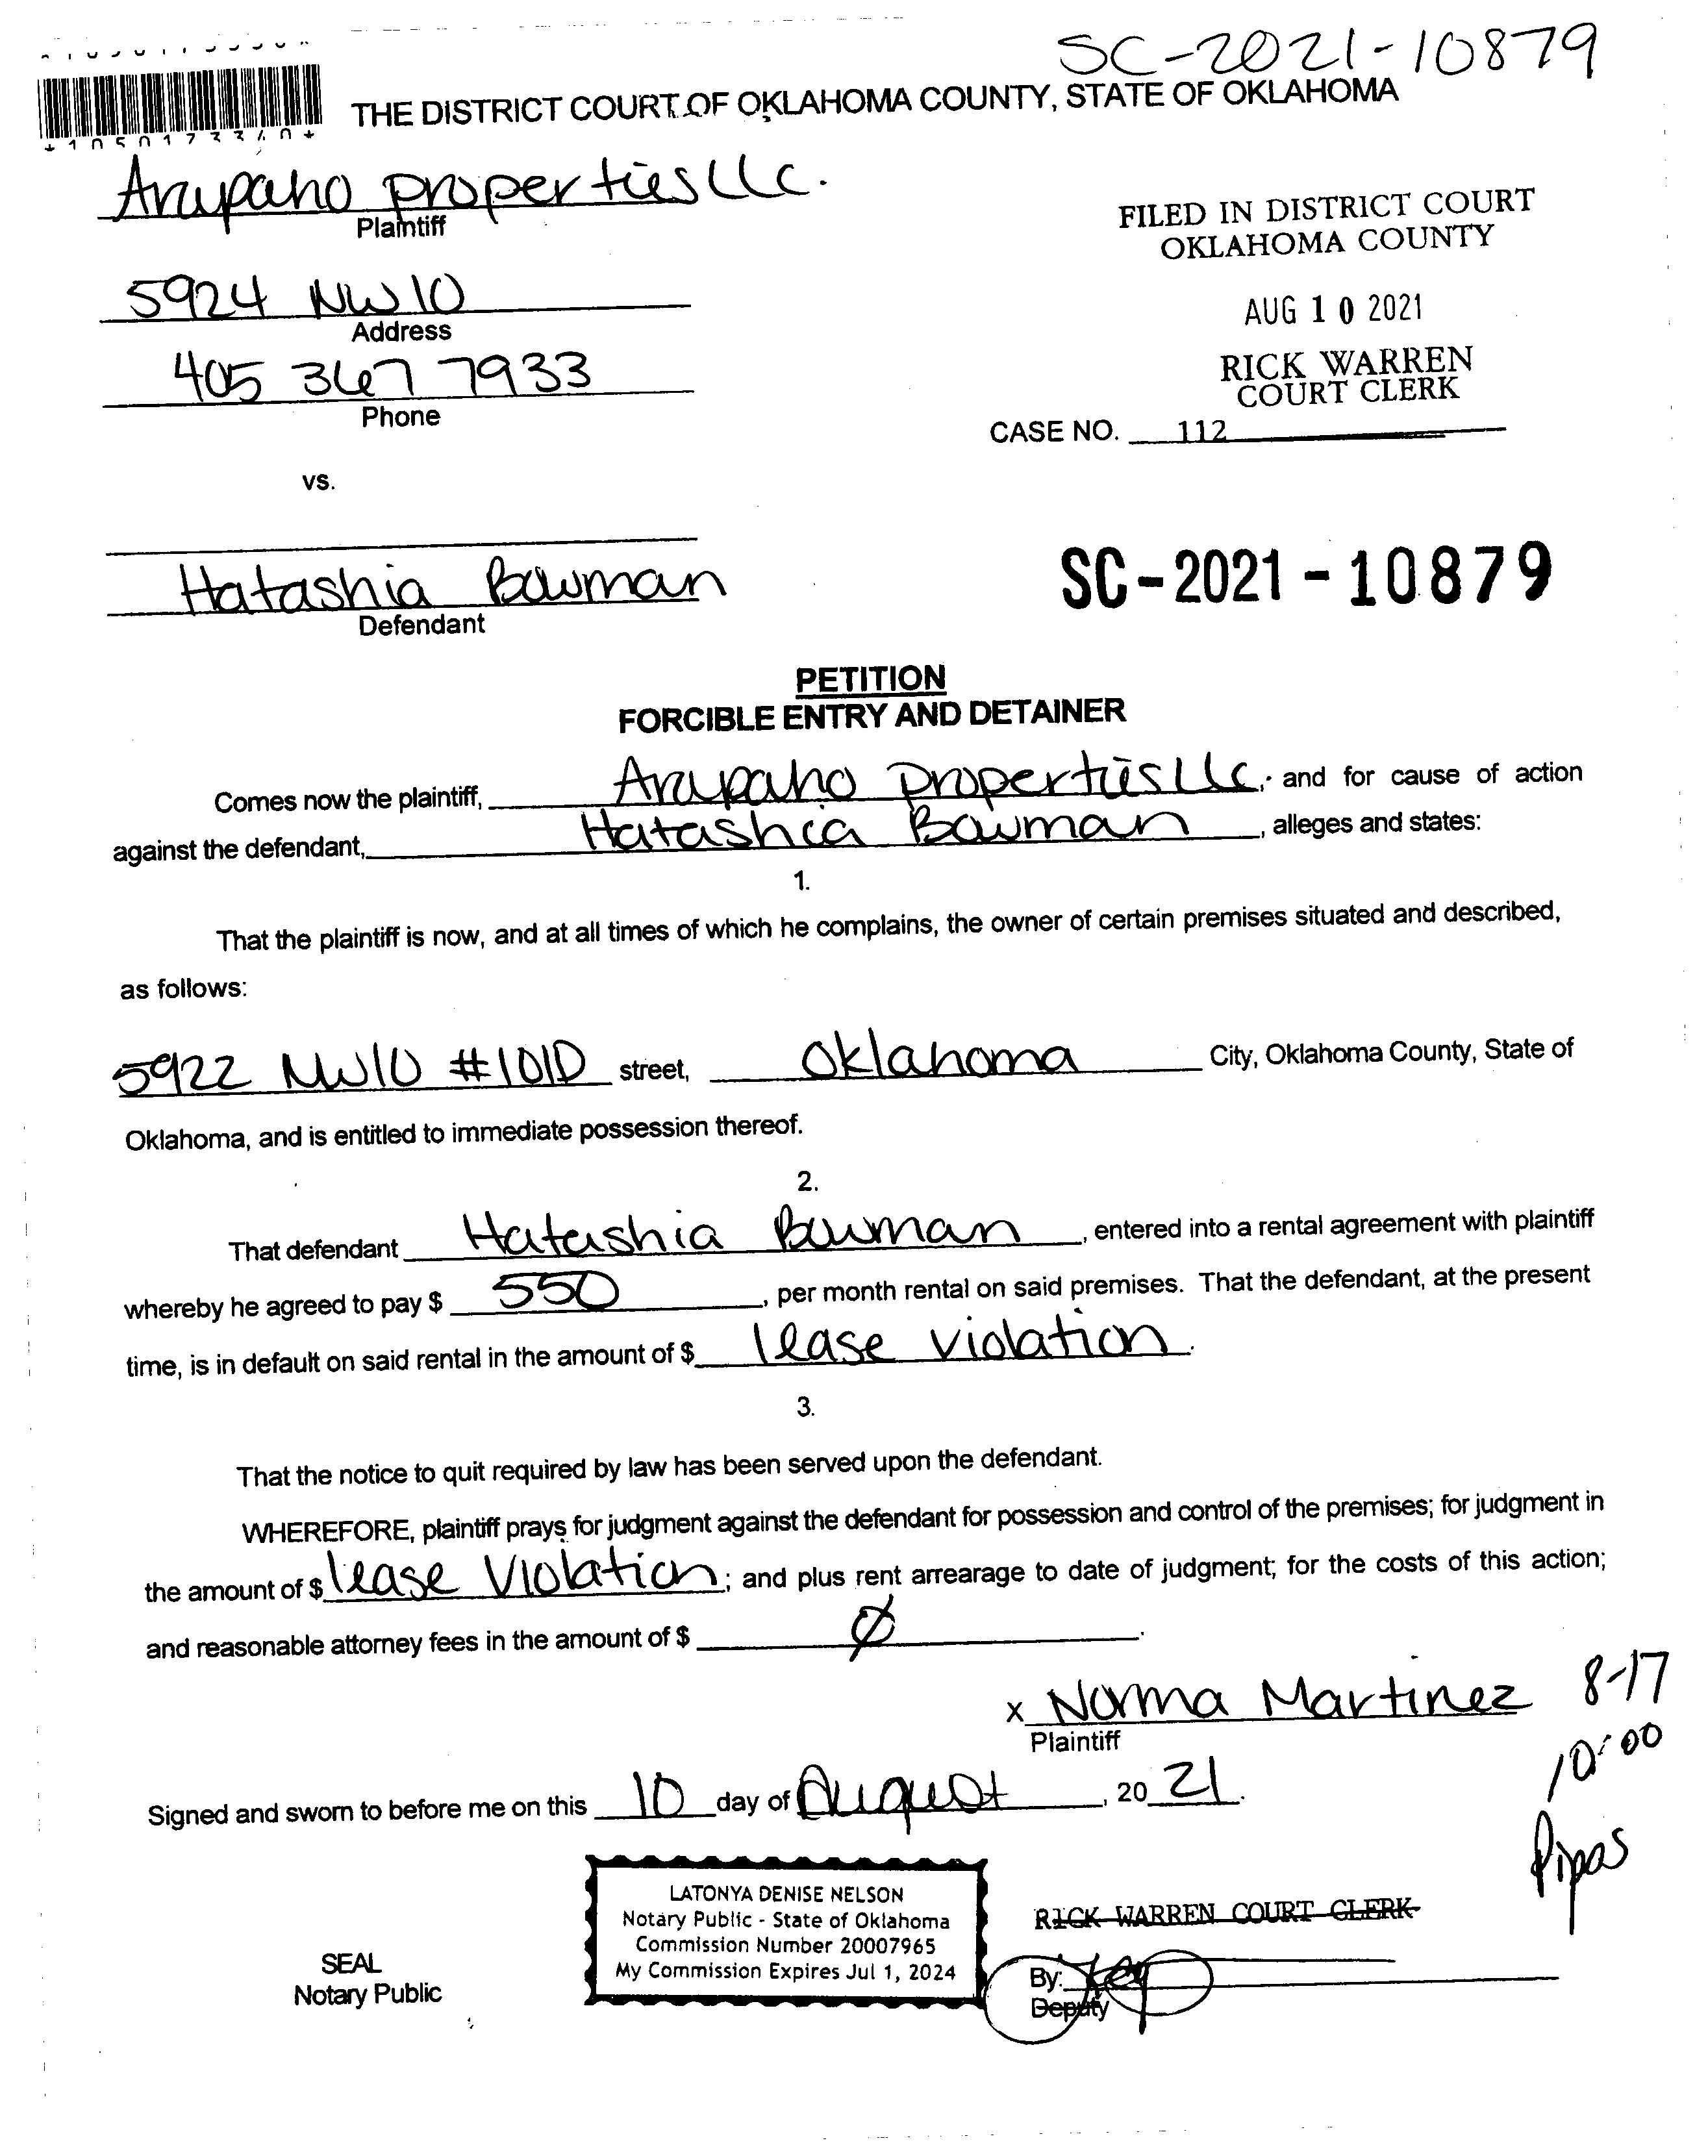 SC-2021-10879
THE DISTRICT COURT OF OKLAHOMA COUNTY, STATE OF OKLAHOMA
*1050173340*
Arapaho properties LLC.
Plaintiff
FILED IN DISTRICT COURT
OKLAHOMA COUNTY
5924 NW 10
Address
AUG 10 2021
405 367 7933
Phone
RICK WARREN
COURT CLERK
CASE NO. 112
vs.
Hatashia Bowman
Defendant
SC-2021-10879
PETITION
FORCIBLE ENTRY AND DETAINER
Comes now the plaintiff, Arapaho properties LLC, and for cause of action
against the defendant, Hatashia Bowman, alleges and states:
1.
That the plaintiff is now, and at all times of which he complains, the owner of certain premises situated and described,
as follows:
5922 NW 10 #101D street, Oklahoma City, Oklahoma County, State of
Oklahoma, and is entitled to immediate possession thereof.
2.
That defendant Hatashia Bowman, entered into a rental agreement with plaintiff
whereby he agreed to pay $ 550, per month rental on said premises. That the defendant, at the present
time, is in default on said rental in the amount of $ lease violation.
3.
That the notice to quit required by law has been served upon the defendant.
WHEREFORE, plaintiff prays for judgment against the defendant for possession and control of the premises; for judgment in
the amount of $ lease violation; and plus rent arrearage to date of judgment; for the costs of this action;
and reasonable attorney fees in the amount of $ Ø.
x Norma Martinez
Plaintiff
8-17
10:00
Pipas
Signed and sworn to before me on this 10 day of August, 2021.
LATONYA DENISE NELSON
Notary Public - State of Oklahoma
Commission Number 20007965
My Commission Expires Jul 1, 2024
SEAL
Notary Public
RICK WARREN COURT CLERK
By:
Deputy